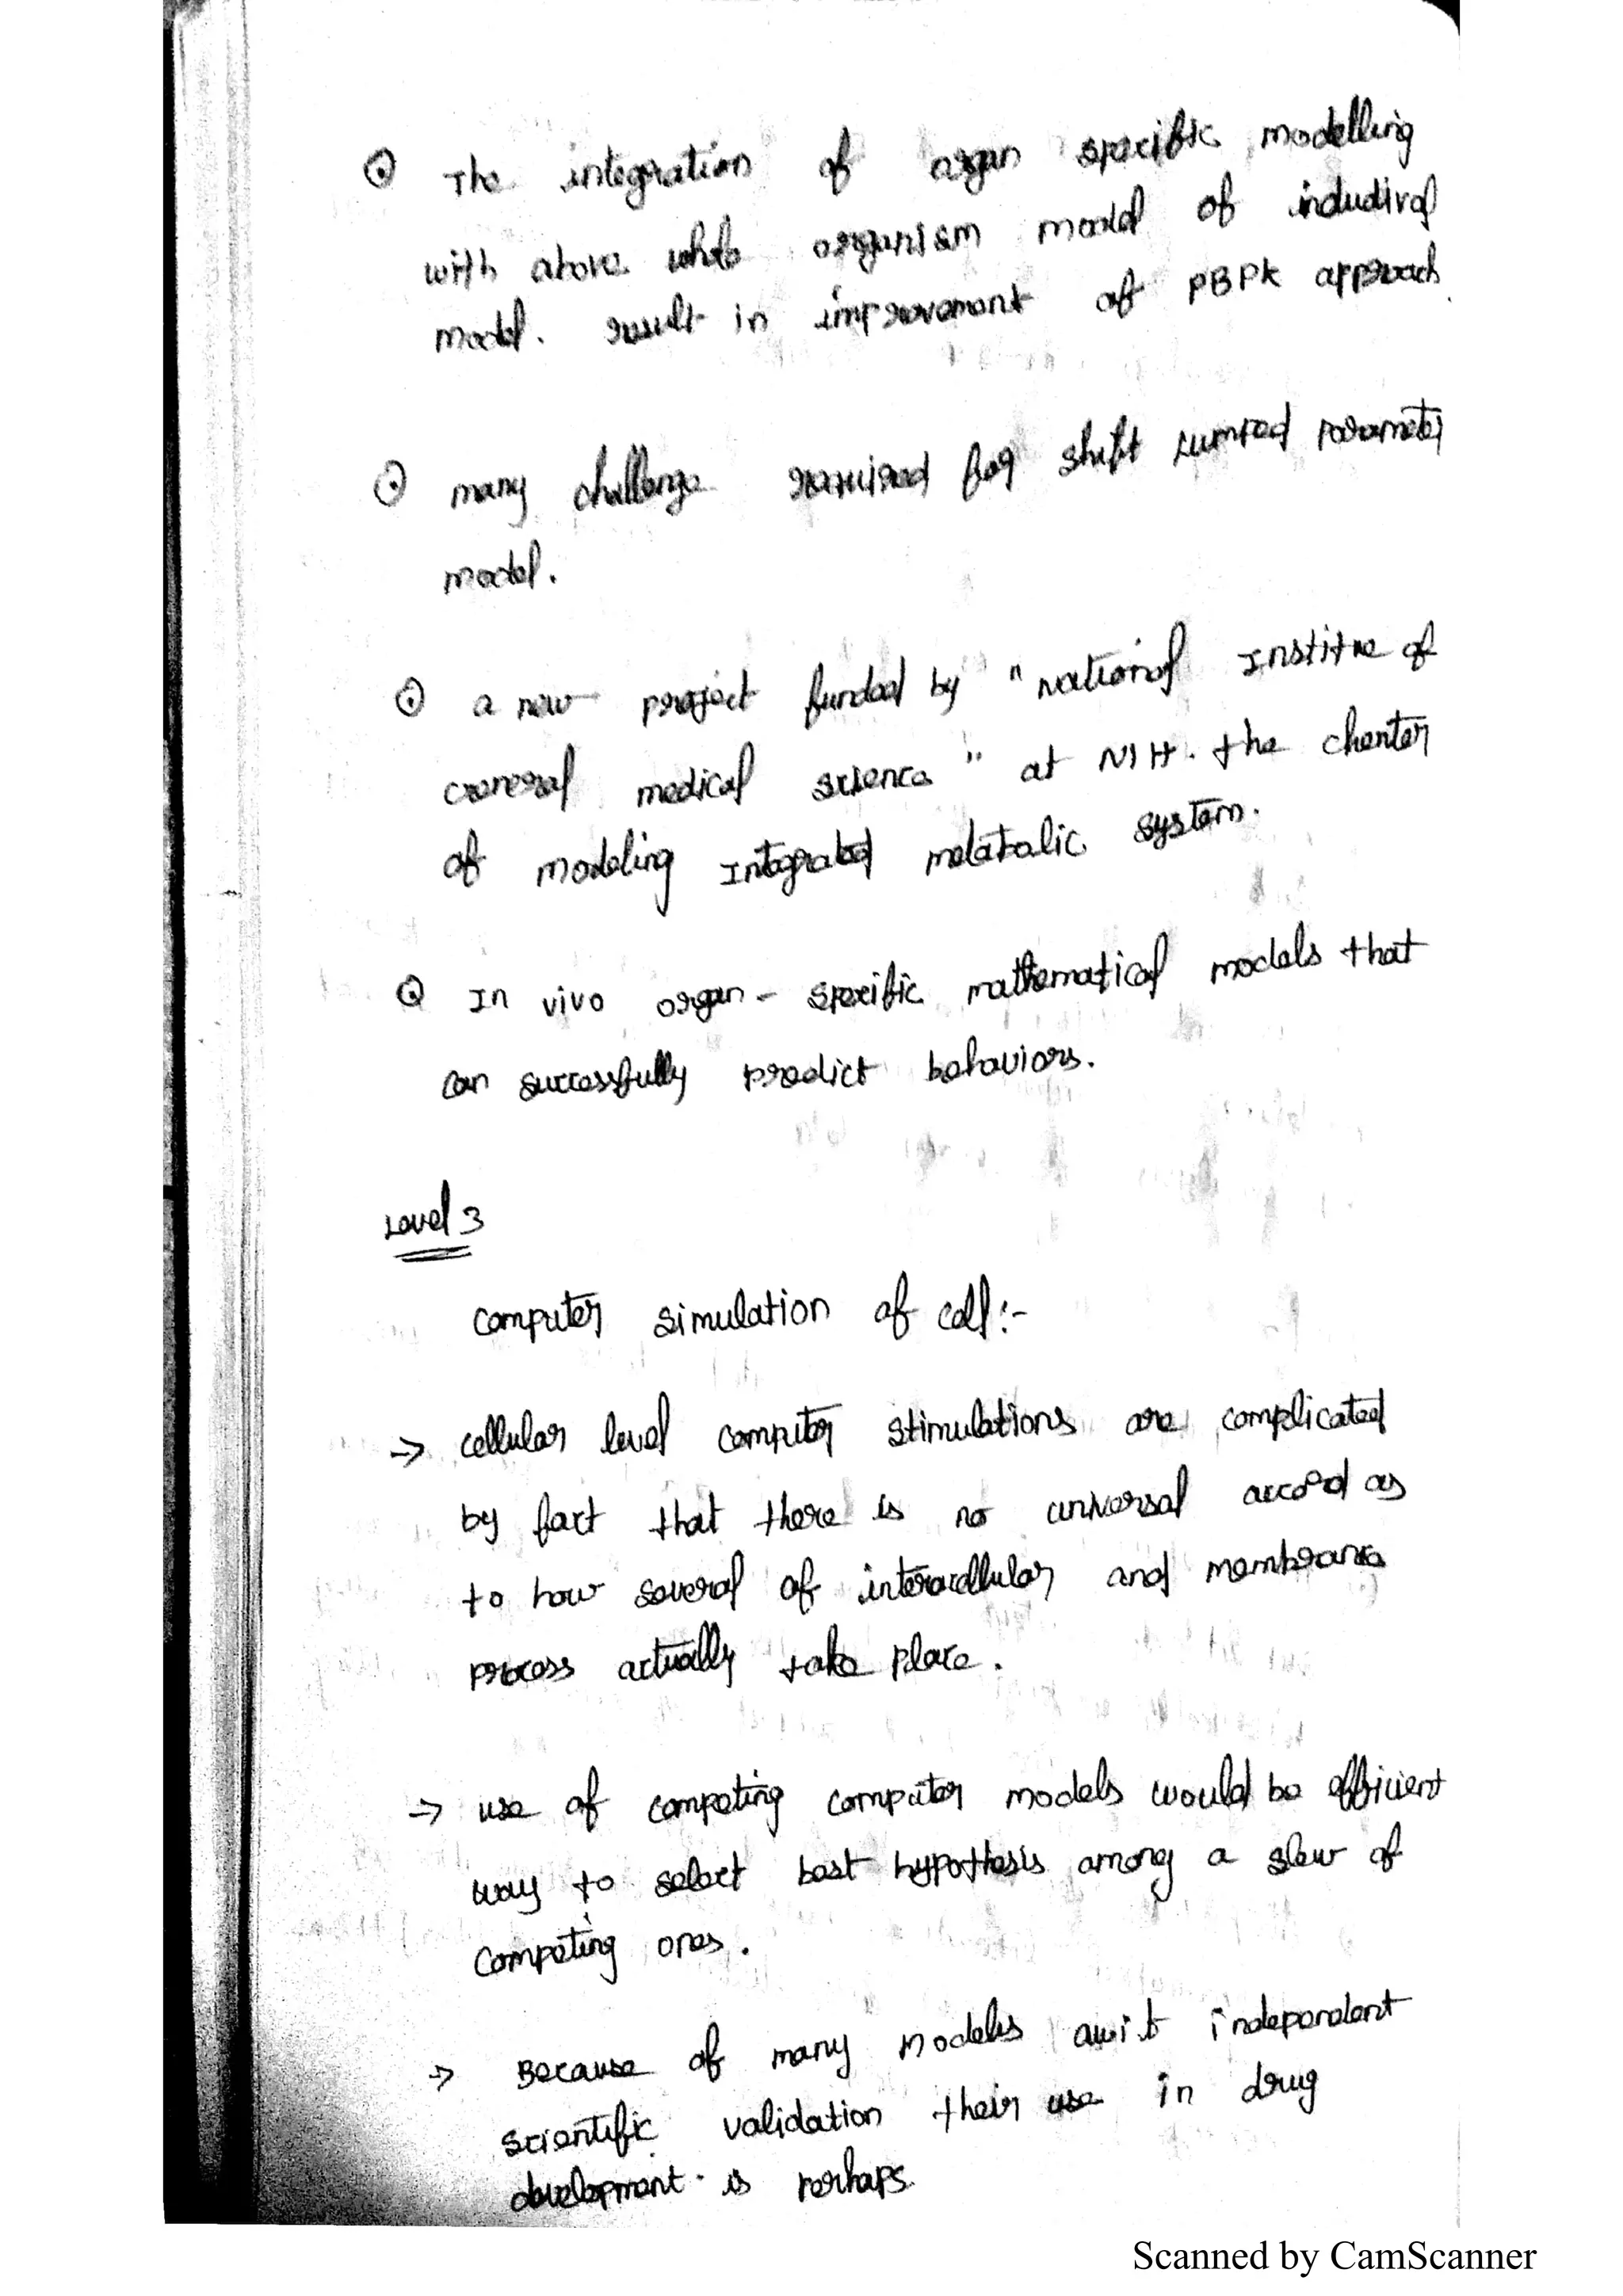 ⊙ The integration of organ specific modelling
with above whole organism model of indudival
model. result in improvement of PBPK approach.
⊙ many challenge required for shift Lumped parameter
model.
⊙ a new project funded by "National Institue of
General medical science" at NIH. the chenter
of modeling Integrated metabalic system.
⊙ In vivo organ - specific mathematical models that
can successfully predict behaviors.
Level 3
computer simulation of cell :-
→ cellular level computer stimulations are complicated
by fact that there is no universal accord as
to how several of interacellular and membrane
process actually take place.
→ use of competing computer models would be efficient
way to select best hypothesis among a slew of
competing ones.
→ Because of many models awit independent
scientific validation their use in drug
development is perhaps
Scanned by CamScanner